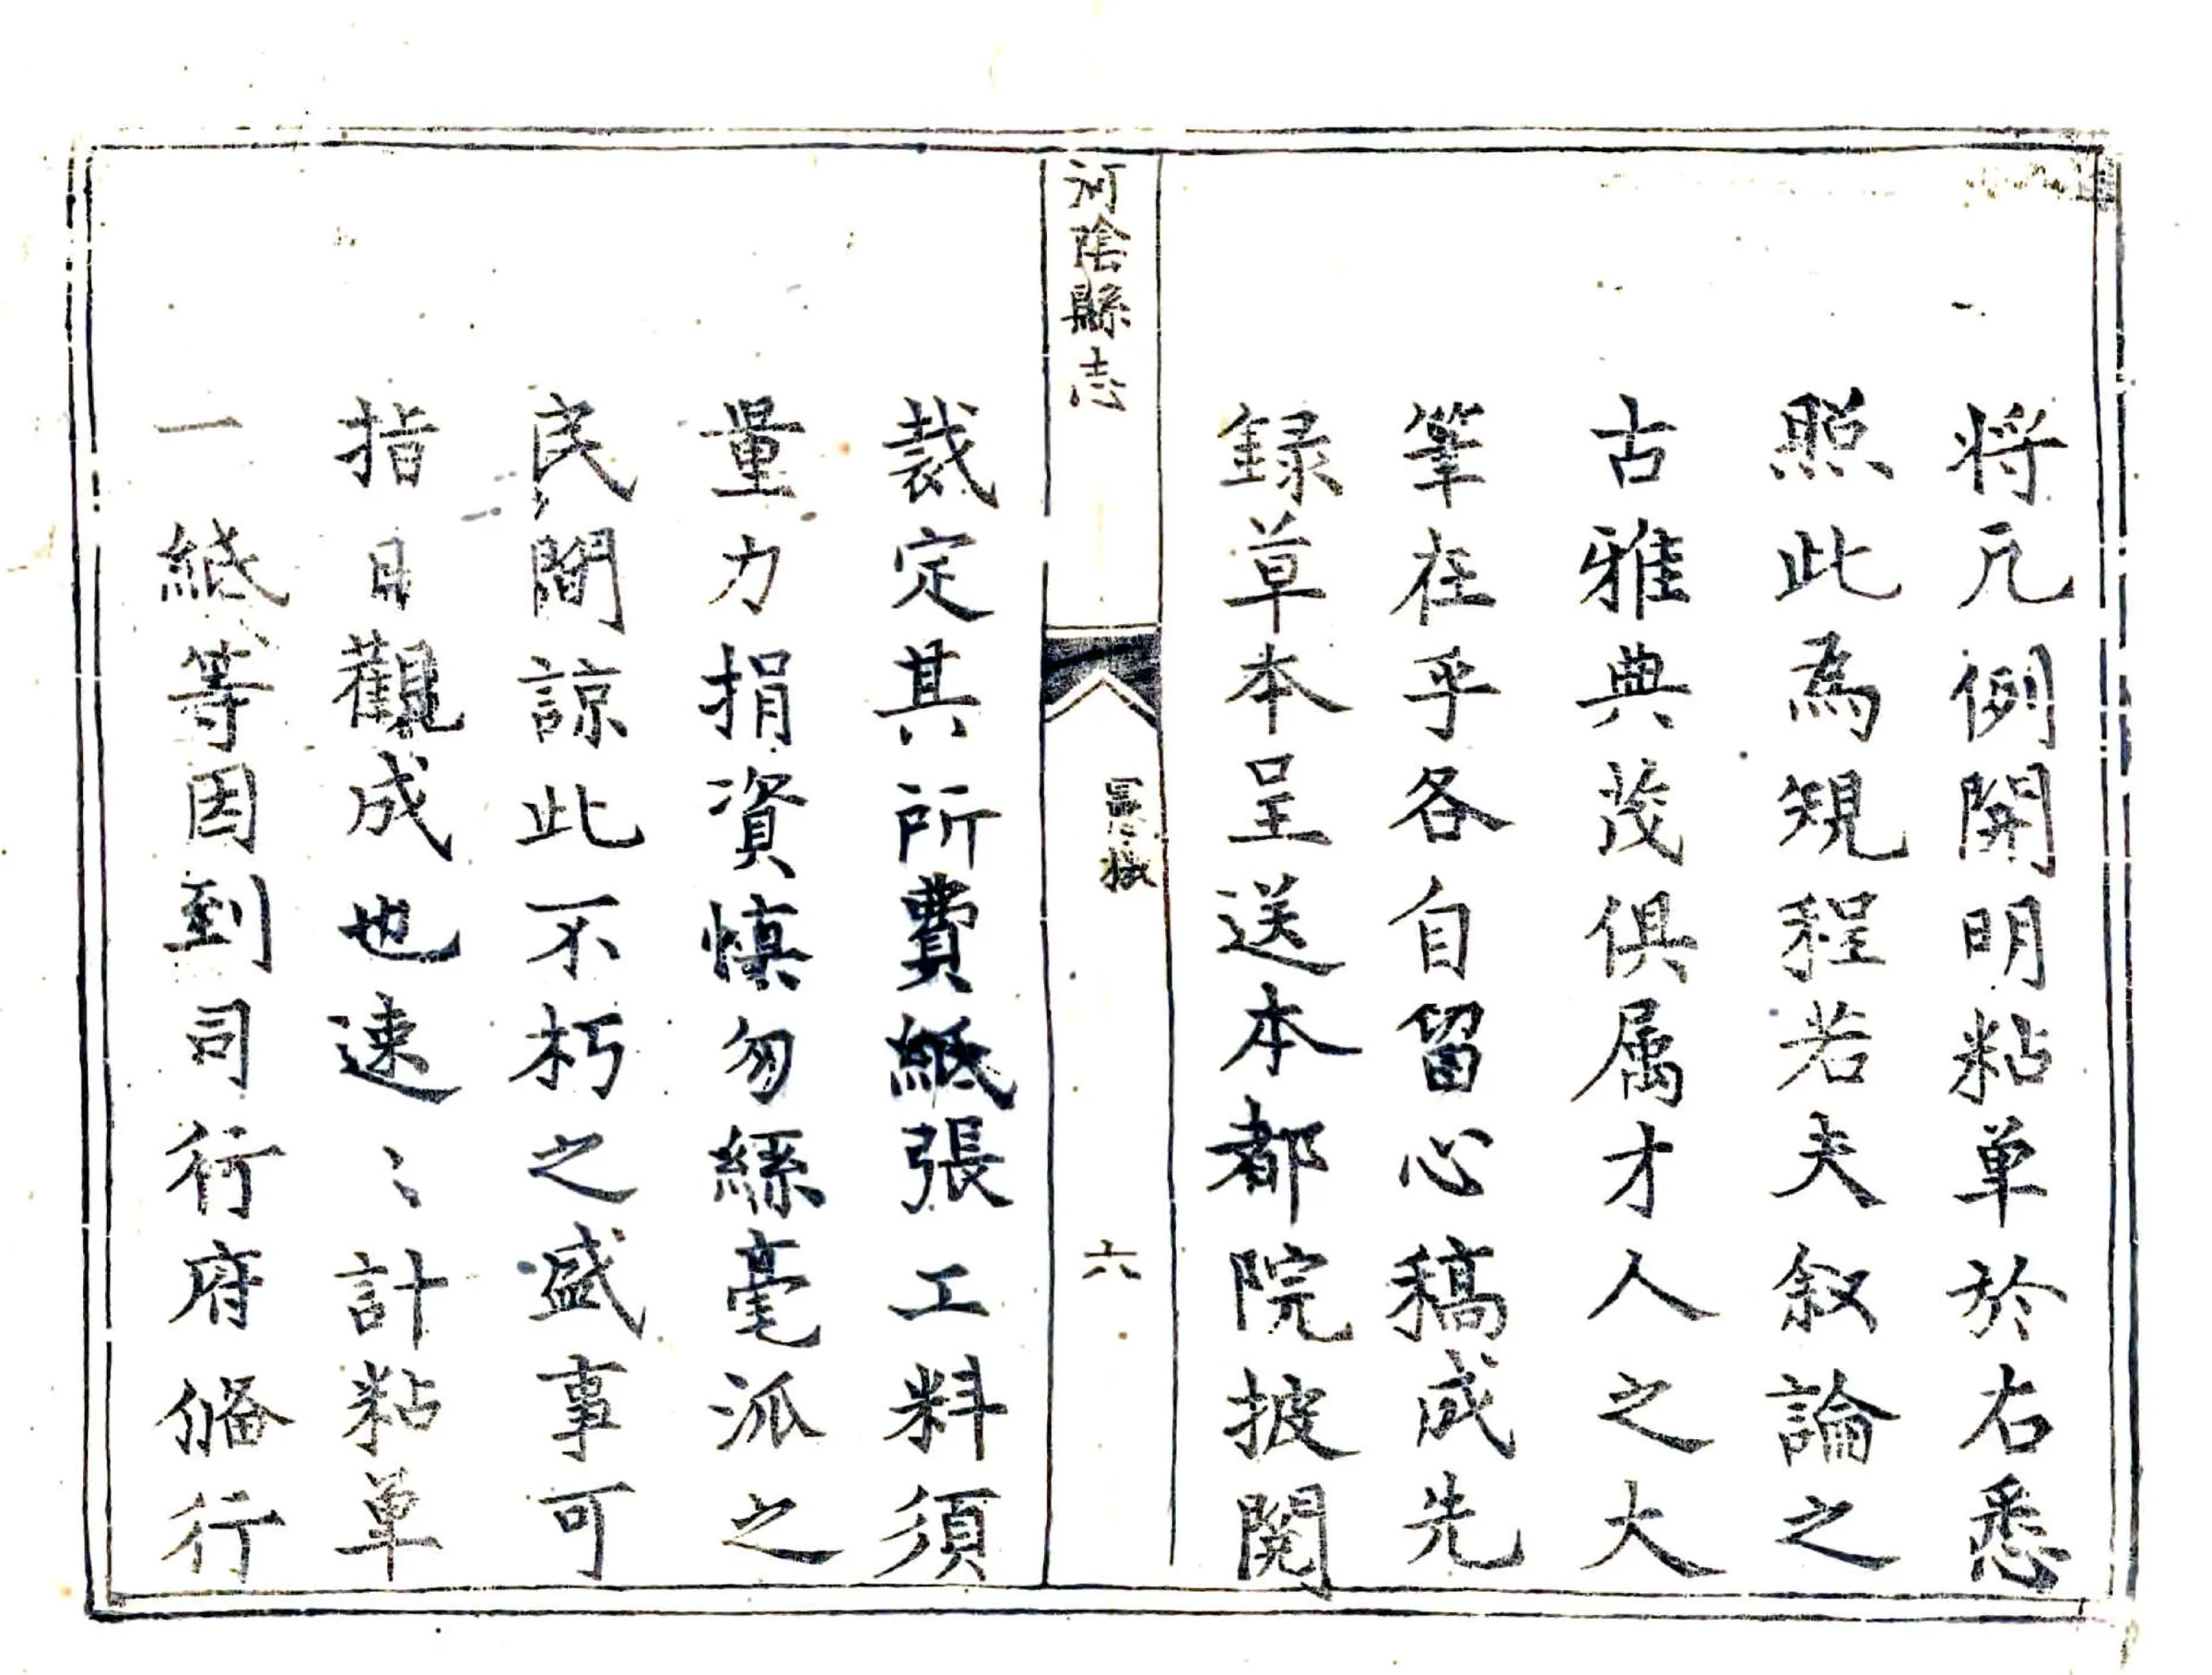 将凢例開明粘单於右悉
照此為䂓程若夫叙論之
古雅典茂俱属才人之大
筆在乎各自留心稿成先
録草本呈送本都院披閱
河陰縣志
憲檄
六
裁定其所費紙張工料須
量力捐資慎勿絲毫派之
民間諒此不朽之盛事可
指日觀成也速〻計粘单
一紙等因到司行府俻行